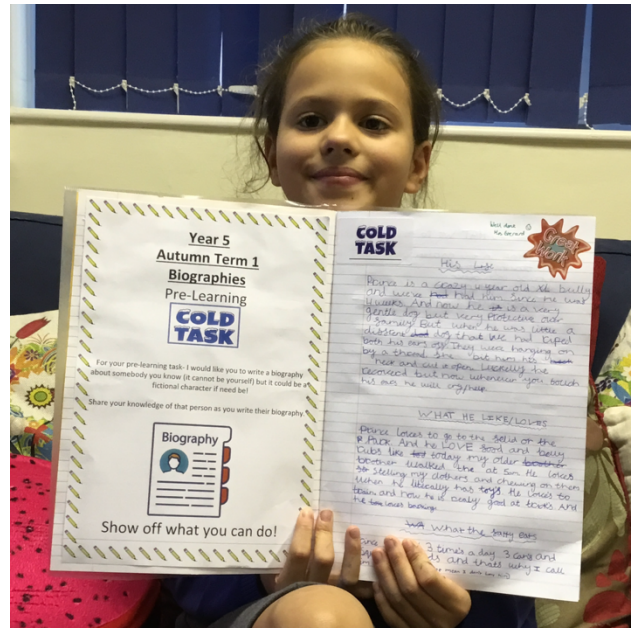 Year 5
Autumn Term 1
Biographies
Pre-Learning
COLD
TASK
For your pre-learning task- I would like you to write a biography
about somebody you know (it cannot be yourself) but it could be a
fictional character if need be!
Share your knowledge of that person as you write their biography.
Biography
Show off what you can do!
COLD
TASK
Well done
Great
Work
Prince is a crazy 4 year old XL bully
and we've had him since he was
weeks And now he is a very
gentle dog but very Protective over
family But when he was little a
different dog that we had ripped
both his ears off They were hanging on
by a thread She bit him his
neck and cut it open Luckily he
recovered but now whenever you touch
his ears he will cry
WHAT HE LIKE/LOVES
Prince loves to go to the field or the
Park And he LOVE food and belly
rubs like today my older brother
walked the of Sin He loves
stelling my clothers and chewing on them
When he literally has toys He loves to
train and now he is really good at tricks And
he
What the
3 times a day 3 and
and thats why I call